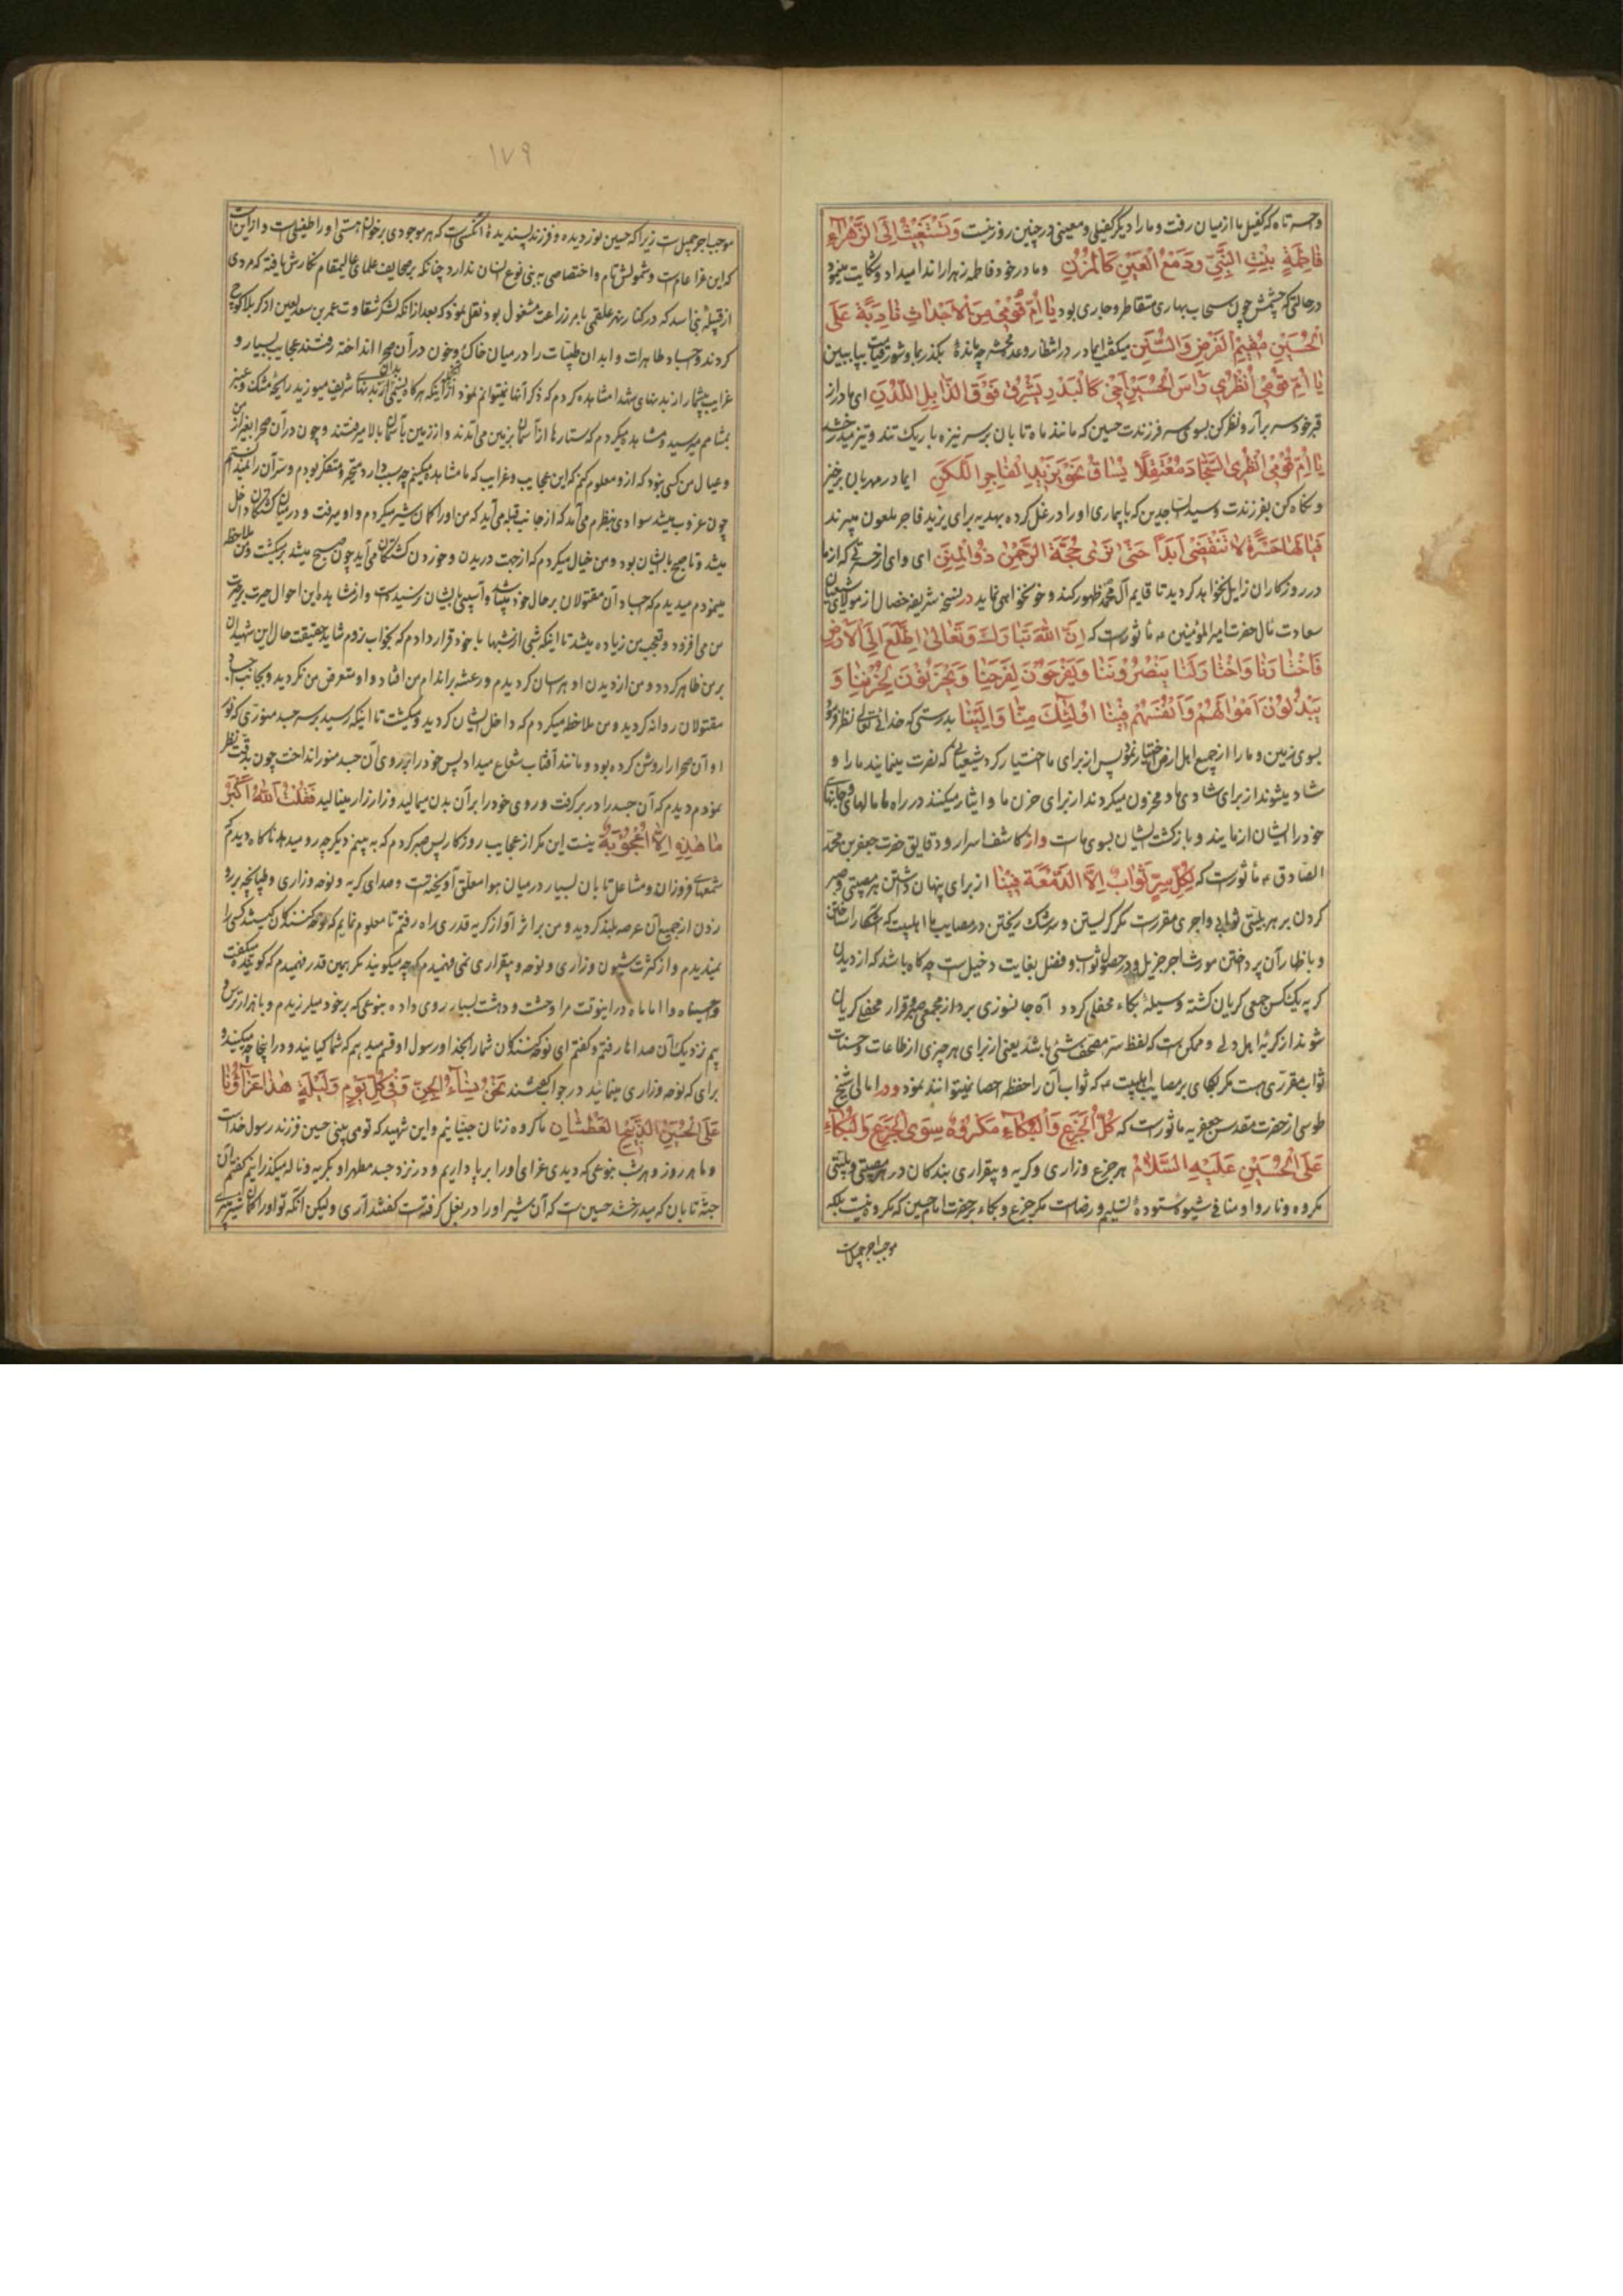 وا حسرتاه که کفیل ما از میان رفت و ما را دیگر کفیلی و معینی در چنین روز نیست وَتَسْتَغِيثُ اِلَى الزَّهْرَاءِ
فَاطِمَةٍ بِنْتِ النَّبِيِّ وَدَمْعُ الْعَيْنِ كَالْمُزْنِ و مادر خود فاطمه زهرا را ندا میداد و شکایت مینمود
در حالتی که چشمش چون سحاب بهاری متقاطر و جاری بود يٰا اُمِّ قُومِى مِنَ الْاَجْدٰاثِ نٰادِبَةً عَلَى
الْحُسَيْنِ مُقِيمِ الْفَرْضِ وَالسُّنَنِ میگفت ایمادر در انتظار وعده محشر چه مانده بگذر بما و شور قیامت بیا ببین
يٰا اُمِّ قُومِى اُنْظُرِى رَاْسَ الْحُسَيْنِ اَخِى كَالْبَدْرِ يُشْرِقُ فَوْقَ الذّٰابِلِ اللَّدْنِ ای مادر از
قبر خود سر برآر و نظر کن بسوی سر فرزندت حسین که مانند ماه تابان بر سر نیزه باریک تند و تیز میدرخشد
يٰا اُمِّ قُومِى اُنْظُرِى السَّجّٰادَ مُعْتَقِلًا يُسٰاقُ نَحْوَ يَزِيدِ الْفٰاجِرِ اللَّكِنِ ایمادر مهربان برخیز
و نگاه کن بفرزندت سید الساجدین که با بیماری او را در غل کرده بهدیه برای یزید فاجر ملعون میبرند
فَيٰا لَهٰا حَسْرَةً لٰا تَنْقَضِى اَبَدًا حَتّٰى نَرٰى حُجَّةَ الرَّحْمٰنِ ذُو الْمِنَنِ ای وای از حسرتی که از ما
در روزگاران زایل نخواهد کردید تا قایم آل محمد ظهور کند و خونخواهی نماید در نسخه شریفه خصال از مولای شیعیان
سعادت مآل حضرت امیر المؤمنین ع مأثورست که اِنَّ اللّٰهَ تَبٰارَكَ وَتَعٰالىٰ اِطَّلَعَ اِلَى الْاَرْضِ
فَاخْتٰارَنٰا وَاخْتٰارَ لَنٰا يَنْصُرُونَنٰا وَيَفْرَحُونَ لِفَرَحِنٰا وَيَحْزَنُونَ لِحُزْنِنٰا وَ
يَبْذُلُونَ اَمْوٰالَهُمْ وَاَنْفُسَهُمْ فِينٰا اُولٰئِكَ مِنّٰا وَاِلَيْنٰا بدرستی که خدای تعالی نظر فرمود
بسوی زمین و ما را از جمیع اهل ارض اختیار نمود پس از برای ما اختیار کرد شیعیانی که نصرت مینمایند ما را و
شاد میشوند از برای شادی ما و محزون میکردند از برای حزن ما و ایثار میکنند در راه ما مالها و جانهای
خود را ایشان از مایند و بازگشت ایشان بسوی ماست و از کاشف اسرار و دقایق حضرت جعفر بن محمد
الصادق ع مأثورست که لِكُلِّ سِرٍّ ثَوٰابٌ اِلَّا الدَّمْعَةَ فِينٰا از برای پنهان داشتن هر مصیبتی و صبر
کردن بر هر بلیتی ثوابی و اجری مقررست مگر گریستن و سرشک ریختن در مصایب ما اهلبیت که آشکارا ساختن
و باظهار آن پرداختن مورث اجر جزیل و در حصول ثواب و فضل بغایت دخیل است چه گاه باشد که از دیدن
گریه یکنکس جمعی گریان گشته وسیله بکاء محفلی گردد آه جانسوزی برد از مجمعی صبر و قرار محفلی گریان
شوند از گریه اهل دلی و ممکن است که لفظ سر مصحف شیئ باشد یعنی از برای هر چیزی از طاعات و حسنات
ثواب مقرری هست مگر بکای بر مصایب اهلبیت ع که ثواب آن را حفظه احصا نمیتوانند نمود و در امالی شیخ
طوسی از حضرت مقدس جعفریه ماثورست که كُلُّ الْجَزَعِ وَالْبُكٰاءِ مَكْرُوهٌ سِوَى الْجَزَعِ وَالْبُكٰاءِ
عَلَى الْحُسَيْنِ عَلَيْهِ السَّلٰامُ هر جزع و زاری و گریه و بیقراری بندگان در هر مصیبتی و بلیتی
مکروه و ناروا و منافی شیوه ستوده تسلیم و رضاست مگر جزع و بکاء بر حضرت امام حسین که مکروه نیست بلکه
موجب اجر جمیل است
۱۷۹
موجب اجر جمیل است زیرا که حسین نور دیده و فرزند پسندیده آنکسی است که هر موجودی بر خوان هستی او را طفیلی است و از این است
که این عزا عام است و شمولش تام و اختصاصی به بنی نوع انسان ندارد چنانکه بر صحایف علمای عالیمقام نگارش یافته که مردی
از قبیله بنی اسد که در کنار نهر علقمی بامر زراعت مشغول بود نقل نمود که بعد از آنکه لشکر شقاوت عمر بن سعد لعین از کربلا کوچ
کردند و اجساد طاهرات و ابدان طیبات را در میان خاک و خون در آن صحرا انداخته رفتند عجایب بسیار و
غرایب بیشمار از بدنهای شهدا مشاهده کردم که ذکر آنها نمیتوانم نمود از آنجمله اینکه هرگاه نسیمی از بدنهای شریف میوزید رایحه مشک و عنبر
بمشامم میرسید و مشاهده میکردم که ستارها از آسمان بزمین می آمدند و از زمین بآسمان بالا میرفتند و چون در آن صحرا بغیر از من
و عیال من کسی نبود که از و معلوم کنم که این عجایب و غرایب که ما مشاهده میکنیم چه سبب دارد متحیر و متفکر بودم و سر آن را نمیدانستم
چون غروب میشد سوادی بنظرم می آمد که از جانب قبله می آید که من او را گمان شیر میکردم و او میرفت و در میان کشتگان داخل
میشد و تا صبح با ایشان بود و من خیال میکردم که از جهت دریدن و خوردن کشتگان می آید چون صبح میشد برمیگشت و من ملاحظه
مینمودم میدیدم که اجساد آن مقتولان بر حال خود میباشد و آسیبی بایشان نرسیده است و از مشاهده این احوال حیرت بر حیرت
من می افزود و تعجب من زیاده میشد تا اینکه شبی از شبها با خود قرار دادم که بخواب نروم شاید حقیقت حال این شهیدان
بر من ظاهر گردد و من از دیدن او هراسان گردیدم و رعشه بر اندام من افتاد و او متعرض من نگردید و بجانب اجساد
مقتولان روانه گردید و من ملاحظه میکردم که داخل ایشان گردید و میگشت تا اینکه رسید بر سر جسد منوری که نور
او آن صحرا را روشن کرده بود و مانند آفتاب شعاع میداد پس خود را بر روی آن جسد منور انداخت چون بدقت نظر
نمودم دیدم که آن جسد را در بر گرفت و روی خود را بر آن بدن میمالید و زار زار مینالید فَقُلْتُ اَللّٰهُ اَكْبَرُ
مٰا هٰذِهِ اِلَّا اُعْجُوبَةٌ نیست این مگر از عجایب روزگار پس صبر کردم که به بینم دیگر چه رو میدهد ناگاه دیدم که
شمعهای فروزان و مشاعل تابان بسیار در میان هوا معلق آویخته است و صدای گریه و نوحه و زاری و طپانچه بر رو
زدن از جمیع آن عرصه بلند گردید و من بر اثر آواز گریه قدری راه رفتم تا معلوم نمایم که نوحه کنندگان کیستند کسی را
نمیدیدم و از کثرت شیون و زاری و نوحه و بیقراری نمی فهمیدم که چه میگویند مگر همین قدر فهمیدم که گوینده میگفت
وا حسیناه وا اماماه در اینوقت مرا وحشت و دهشت بسیار روی داده بنوعی که بر خود میلرزیدم و با هزار ترس و
بیم نزدیک آن صداها رفتم و گفتم ای نوحه کنندگان شما را بخدا و رسول او قسم میدهم که شما کیانید و در اینجا چه میکنید و
برای که نوحه و زاری مینمائید در جواب گفتند نَحْنُ نِسٰاءُ الْجِنِّ وَفِى كُلِّ يَوْمٍ وَلَيْلَةٍ هٰذٰا عَزٰاؤُنٰا
عَلَى الْحُسَيْنِ الذَّبِيحِ الْعَطْشٰانِ ما گروه زنان جنیانیم و این شهید که تو می بینی حسین فرزند رسول خداست
و ما هر روز و هر شب بنوعی که دیدی عزای او را برپا داریم و در نزد جسد مطهر او بگریه و ناله میگذرانیم گفتم آن
جثه تابان که میدرخشد حسین است که آن شیر او را در بغل گرفته است گفتند آری ولیکن آنکه تو او را گمان شیر میبری